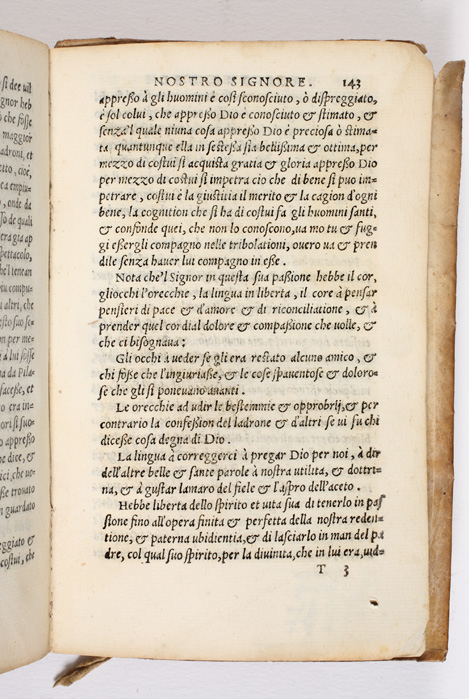 si dee uil
ignor heb
ò che fosse
maggior
adroni, et
etto, cioè,
, onde da
pettacolo,
he'l tenean
ta compu-
i altri, che
m per me-
i à lui fosse
ua da Pila-
sacesse, et
o era in-
ò appresso
he dice, &
ici, che ue-
ße trouato
n guardato
eggiato &
costui, che
NOSTRO SIGNORE. 143
appreßo à gli huomini è così sconosciuto, ò dispreggiato,
è sol colui, che appreßo Dio è conosciuto & stimato, &
senza'l quale niuna cosa appreßo Dio è preciosa ò stima-
ta quantunque ella in seċteßa sia bellissima & ottima, per
mezzo di costui si acquista gratia & gloria appreßo Dio
per mezzo di costui si impetra cio che di bene si puo im-
petrare, costui è la giustitia il merito & la cagion d'ogni
bene, la cognition che si ha di costui fa gli huomini santi,
& confonde quei, che non lo conoscono, ua mo tu & fug-
gi eßergli compagno nelle tribolationi, ouero ua & pren
dile senza hauer lui compagno in eße.
Nota che'l Signor in questa sua paßione hebbe il cor,
gliocchi l'orecchie, la lingua in libertà, il core à pensar
pensieri di pace & d'amore & di riconciliatione, & à
prender quel cordial dolore & compaßione che uolle, &
che ci bisognaua:
Gli occhi à ueder se gli era restato alcuno amico, &
chi foße che l'ingiuriaße, & le cose spauentose & doloro-
se che gli si poneuano auanti.
Le orecchie ad udir le bestemmie & opprobrij, & per
contrario la confeßion del ladrone & d'altri se ui fu chi
diceße cosa degna di Dio.
La lingua à correggerci à pregar Dio per noi, à dir
dell'altre belle & sante parole à nostra utilità, & dottri-
na, & à gustar lamaro del fiele & l'aspro dell'aceto.
Hebbe liberta dello spirito et uita sua di tenerlo in pas
sione fino all'opera finita & perfetta della nostra reden-
tione, & paterna ubidientia, & di lasciarlo in man del pa
dre, col qual suo spirito, per la diuinità, che in lui era, uid-
T 3